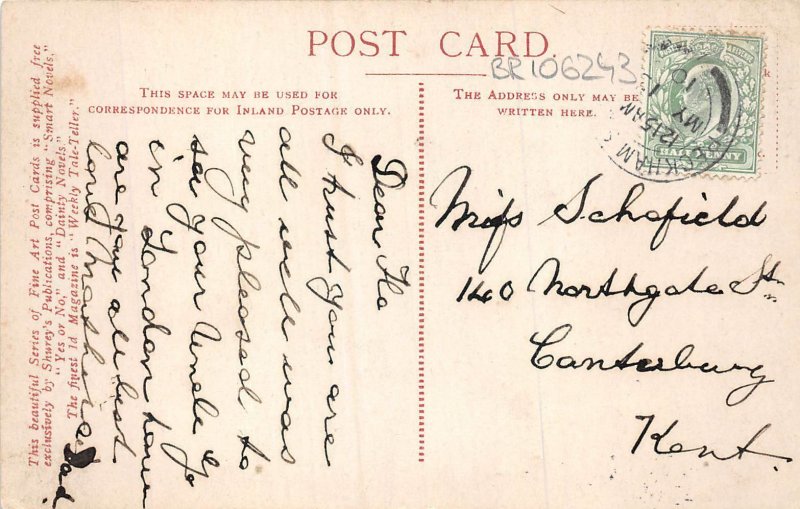 POST CARD.
BR106243
THIS SPACE MAY BE USED FOR
CORRESPONDENCE FOR INLAND POSTAGE ONLY.
THE ADDRESS ONLY MAY BE
WRITTEN HERE.
HALF PENNY
12 15 AM
MY 12
10
Miss Schofield
140 Northgate St
Canterbury
Kent.
Dear Flo
I trust you are
all well was
very pleased to
see your Uncle Jo
in London
are you all best
love Mother & Dad
This beautiful Series of Fine Art Post Cards is supplied free
exclusively by Shurey's Publications, comprising "Smart Novels,"
"Yes or No," and "Dainty Novels"
The finest 1d Magazine is "Weekly Tale-Teller."